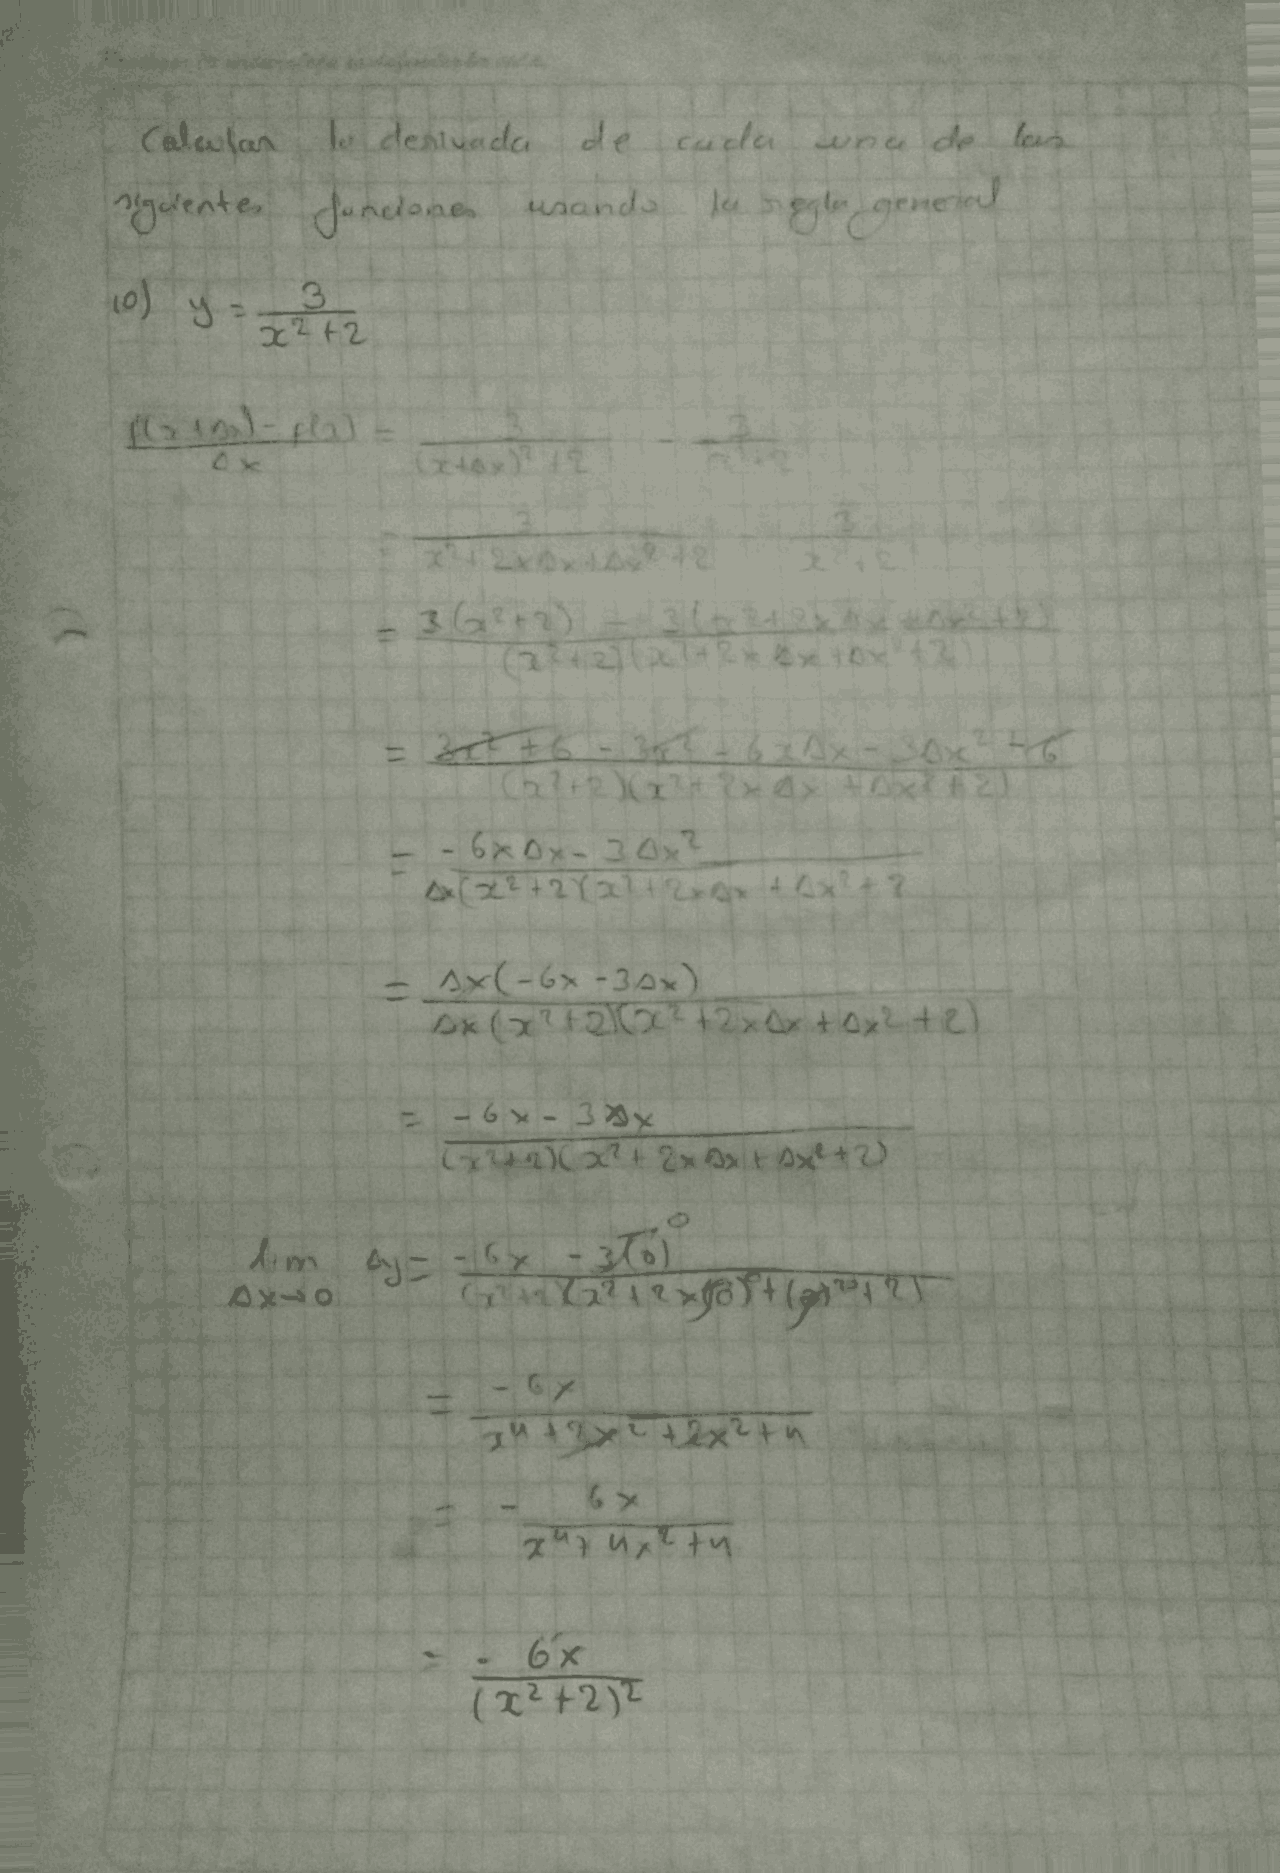 Calcular la derivada de cada una de las
siguientes funciones usando la regla general
10) y = 3/(x²+2)
(f(x+Δx) - f(x))/Δx = 3/((x+Δx)²+2) - 3/(x²+2)
= 3/(x²+2xΔx+Δx²+2) - 3/(x²+2)
= (3(x²+2) - 3(x²+2xΔx+Δx²+2))/((x²+2)(x²+2xΔx+Δx²+2))
= (3x²+6-3x²-6xΔx-3Δx²-6)/((x²+2)(x²+2xΔx+Δx²+2))
= (-6xΔx-3Δx²)/(Δx(x²+2)(x²+2xΔx+Δx²+2
= Δx(-6x-3Δx)/(Δx(x²+2)(x²+2xΔx+Δx²+2))
= (-6x-3Δx)/((x²+2)(x²+2xΔx+Δx²+2))
lim Δx→0 Δy = (-6x-3(0))/((x²+2)(x²+2x(0)+(0)²+2))
= -6x/(x⁴+2x²+2x²+4)
= - 6x/(x⁴+4x²+4)
= - 6x/(x²+2)²